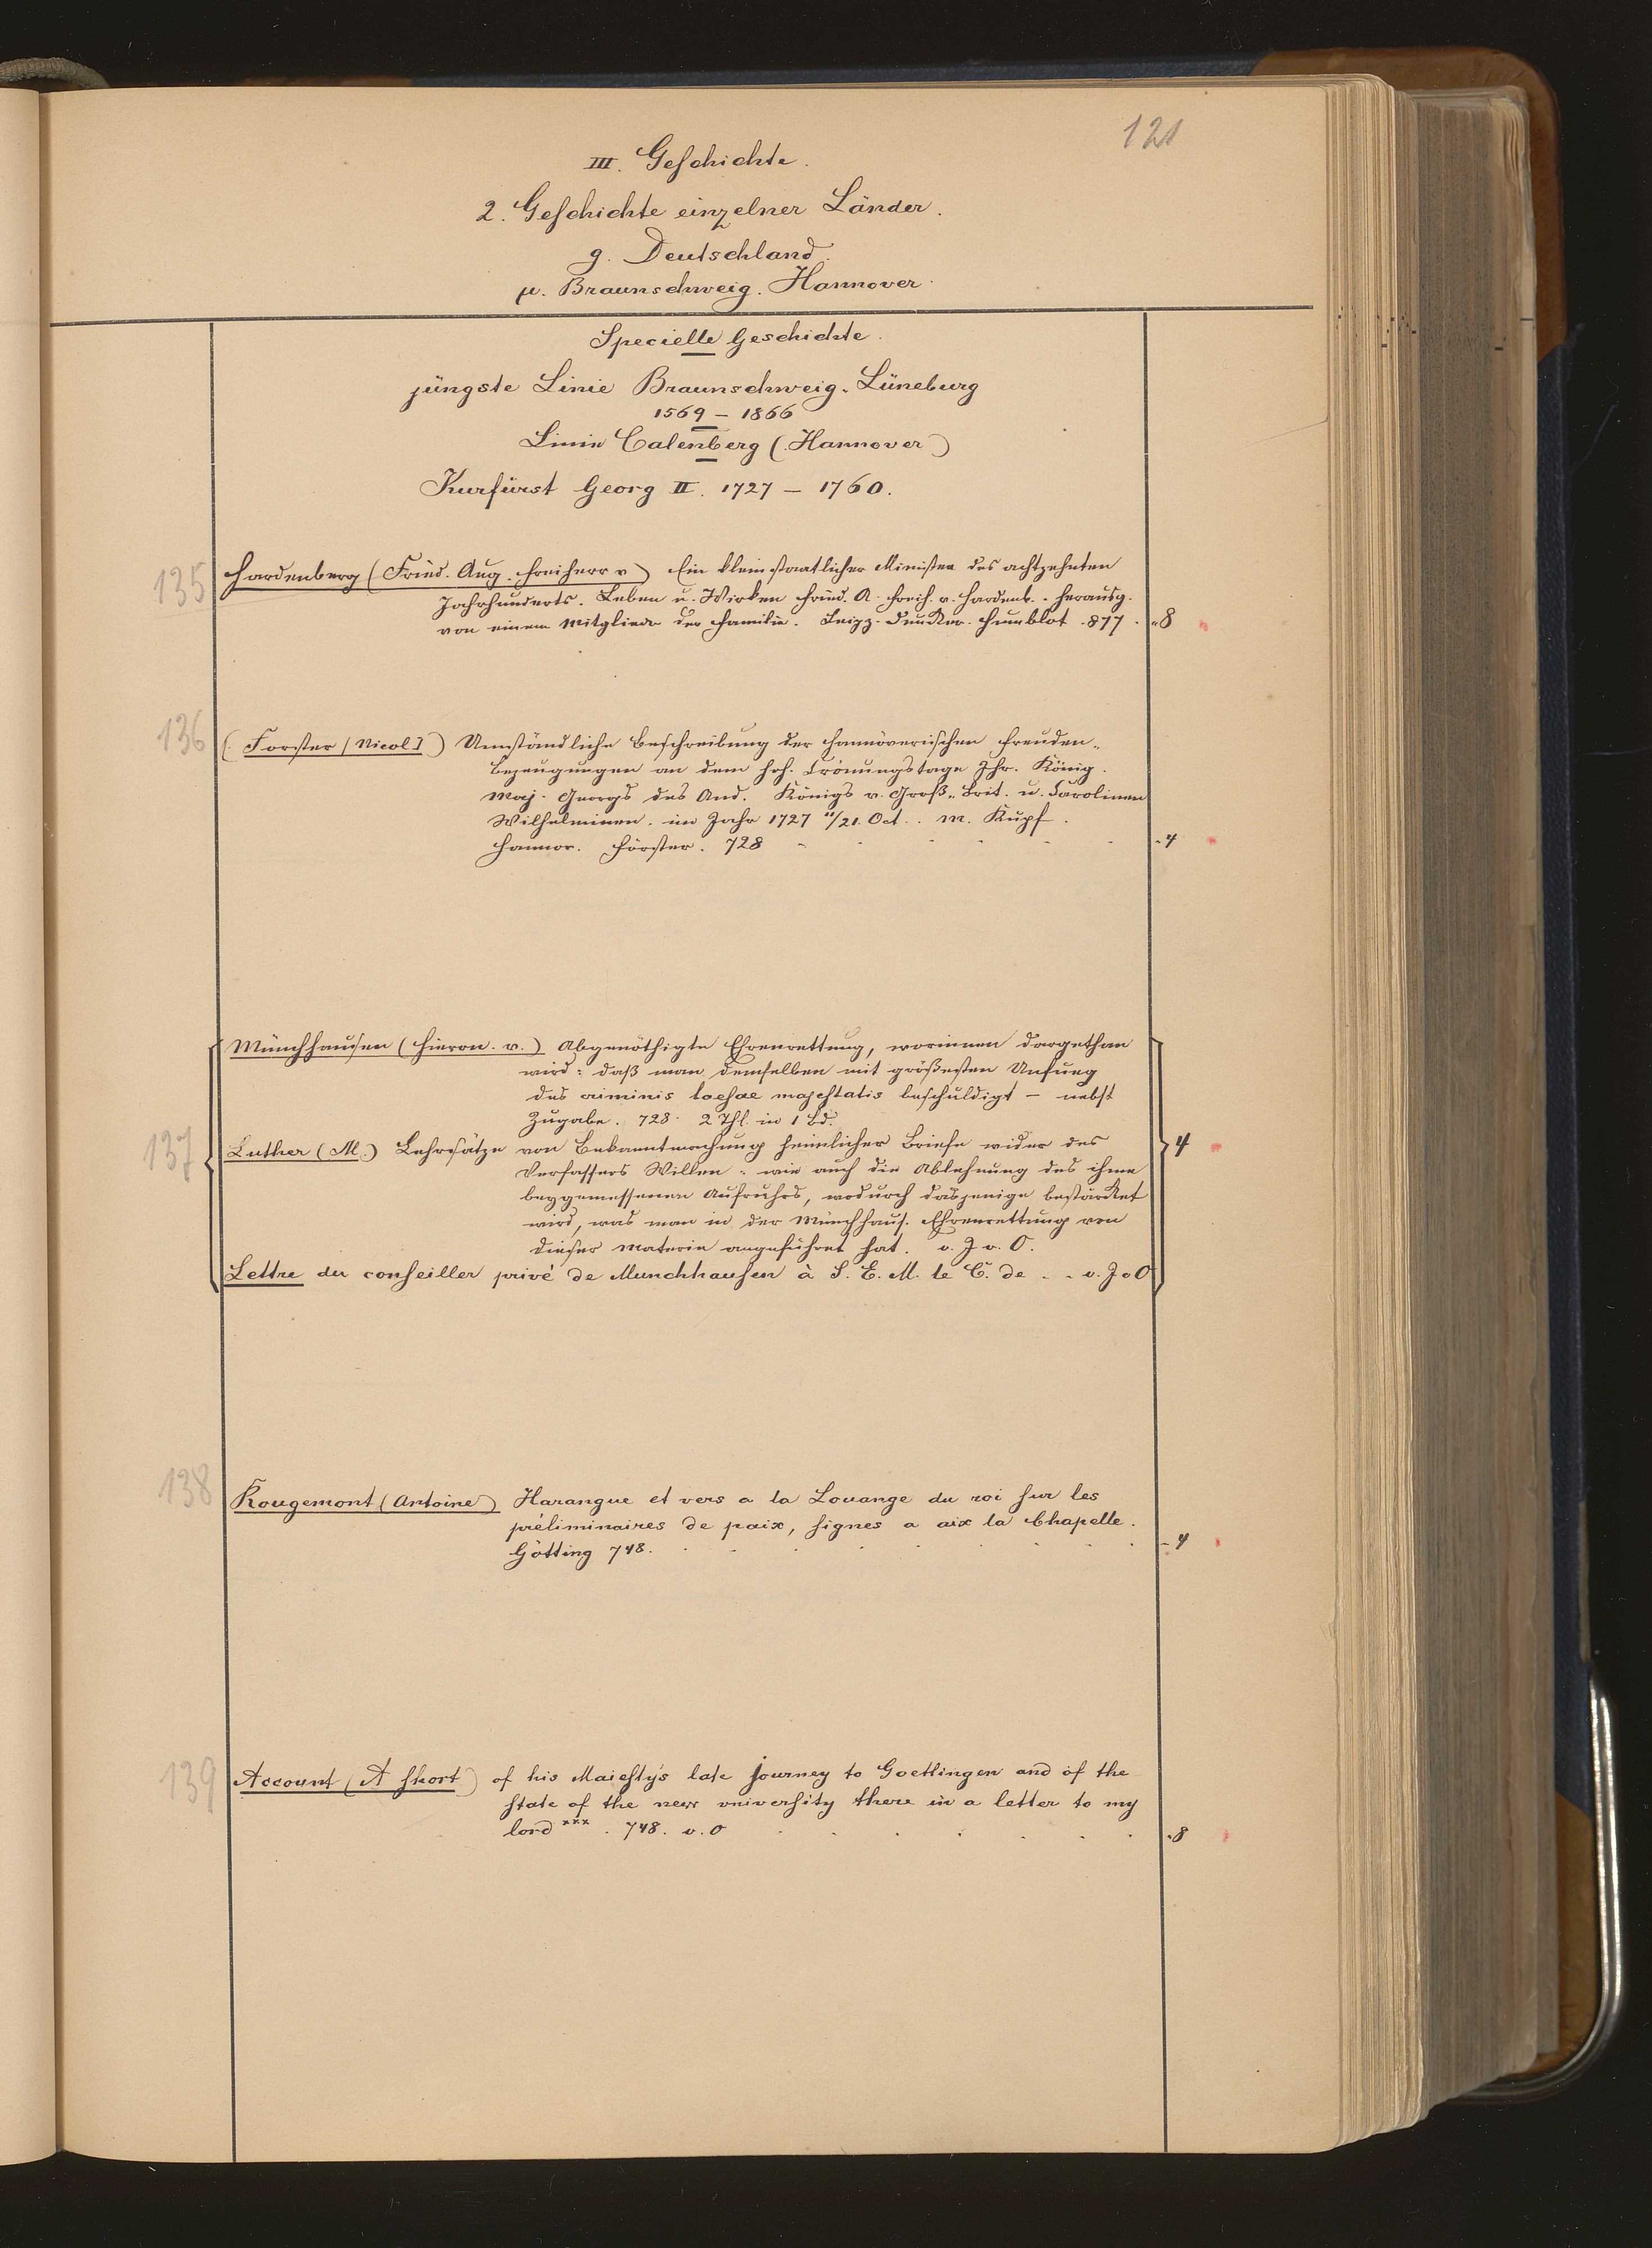 121
III. Geschichte.
2. Geschichte einzelner Länder.
g. Deutschland.
μ. Braunschweig. Hannover.
Specielle Geschichte.
jüngste Linie Braunschweig-Lüneburg
1569 – 1866
Linie Calenberg (Hannover)
Kurfürst Georg II. 1727 – 1760.
135 Hardenberg (Fried. Aug. Freiherr v) Ein kleinstaatlicher Minister des achtzehnten
Jahrhunderts. Leben u. Wirken Fried. A. Freih. v. Hardenb. . Herausg.
von einem Mitglied der Familie. Leipz. Duncker. Humblot .877. 8
136 (Forster [Nicol]) Umständliche Beschreibung der hannöverischen Freuden-
bezeugungen an dem hoh. Crönungstage Ihr. König.
Maj. Georgs des And. Königs v. Groß-Brit. u. Carolinen
Wilhelminen. im Jahr 1727 11/21. Oct. . m. Kupf.
Hannov. Förster. 728 4
Münchhausen (Hieron. v.) Abgenöthigte Ehrenrettung, worinnen dargethan
wird: daß man demselben mit größesten Unfueg
des criminis laesae majestatis beschuldigt – nebst
Zugabe. 728. 2 Thl. in 1 Bd.
137 Luther (M.) Lehrsätze von Bekanntmachung heimlicher Briefe wider des 4
Verfassers Willen: wie auch die Ablehnung des ihme
beygemessenen Aufruhrs, wodurch dasjenige bestärket
wird, was man in der Münchhaus. Ehrenrettung von
dieser Materie angeführet hat. o. J o. O.
Lettre du conseiller privé de Munchhausen à S. E. M. le C. de . . o. J o O
138 Rougemont (Antoine) Harangue et vers a la Louange du roi sur les
préliminaires de paix, signes a aix la Chapelle.
Götting 748. 4
139 Account (A short) of his Maiesty's late journey to Goettingen and of the
state of the new university there in a letter to my
lord xxx . 748. o. O 8